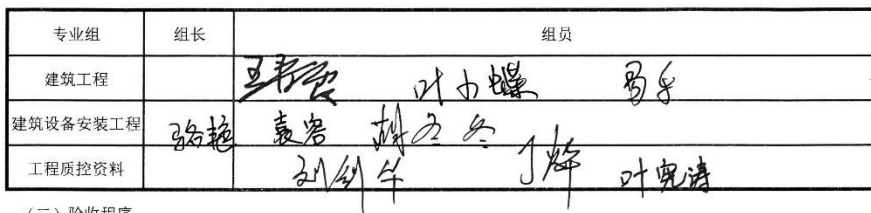 专业组 组长 组员
建筑工程 叶小蝶 易乐
建筑设备安装工程 骆艳 袁容 胡冬冬
工程质控资料 刘剑华 丁烨 叶宪涛
(二)验收程序